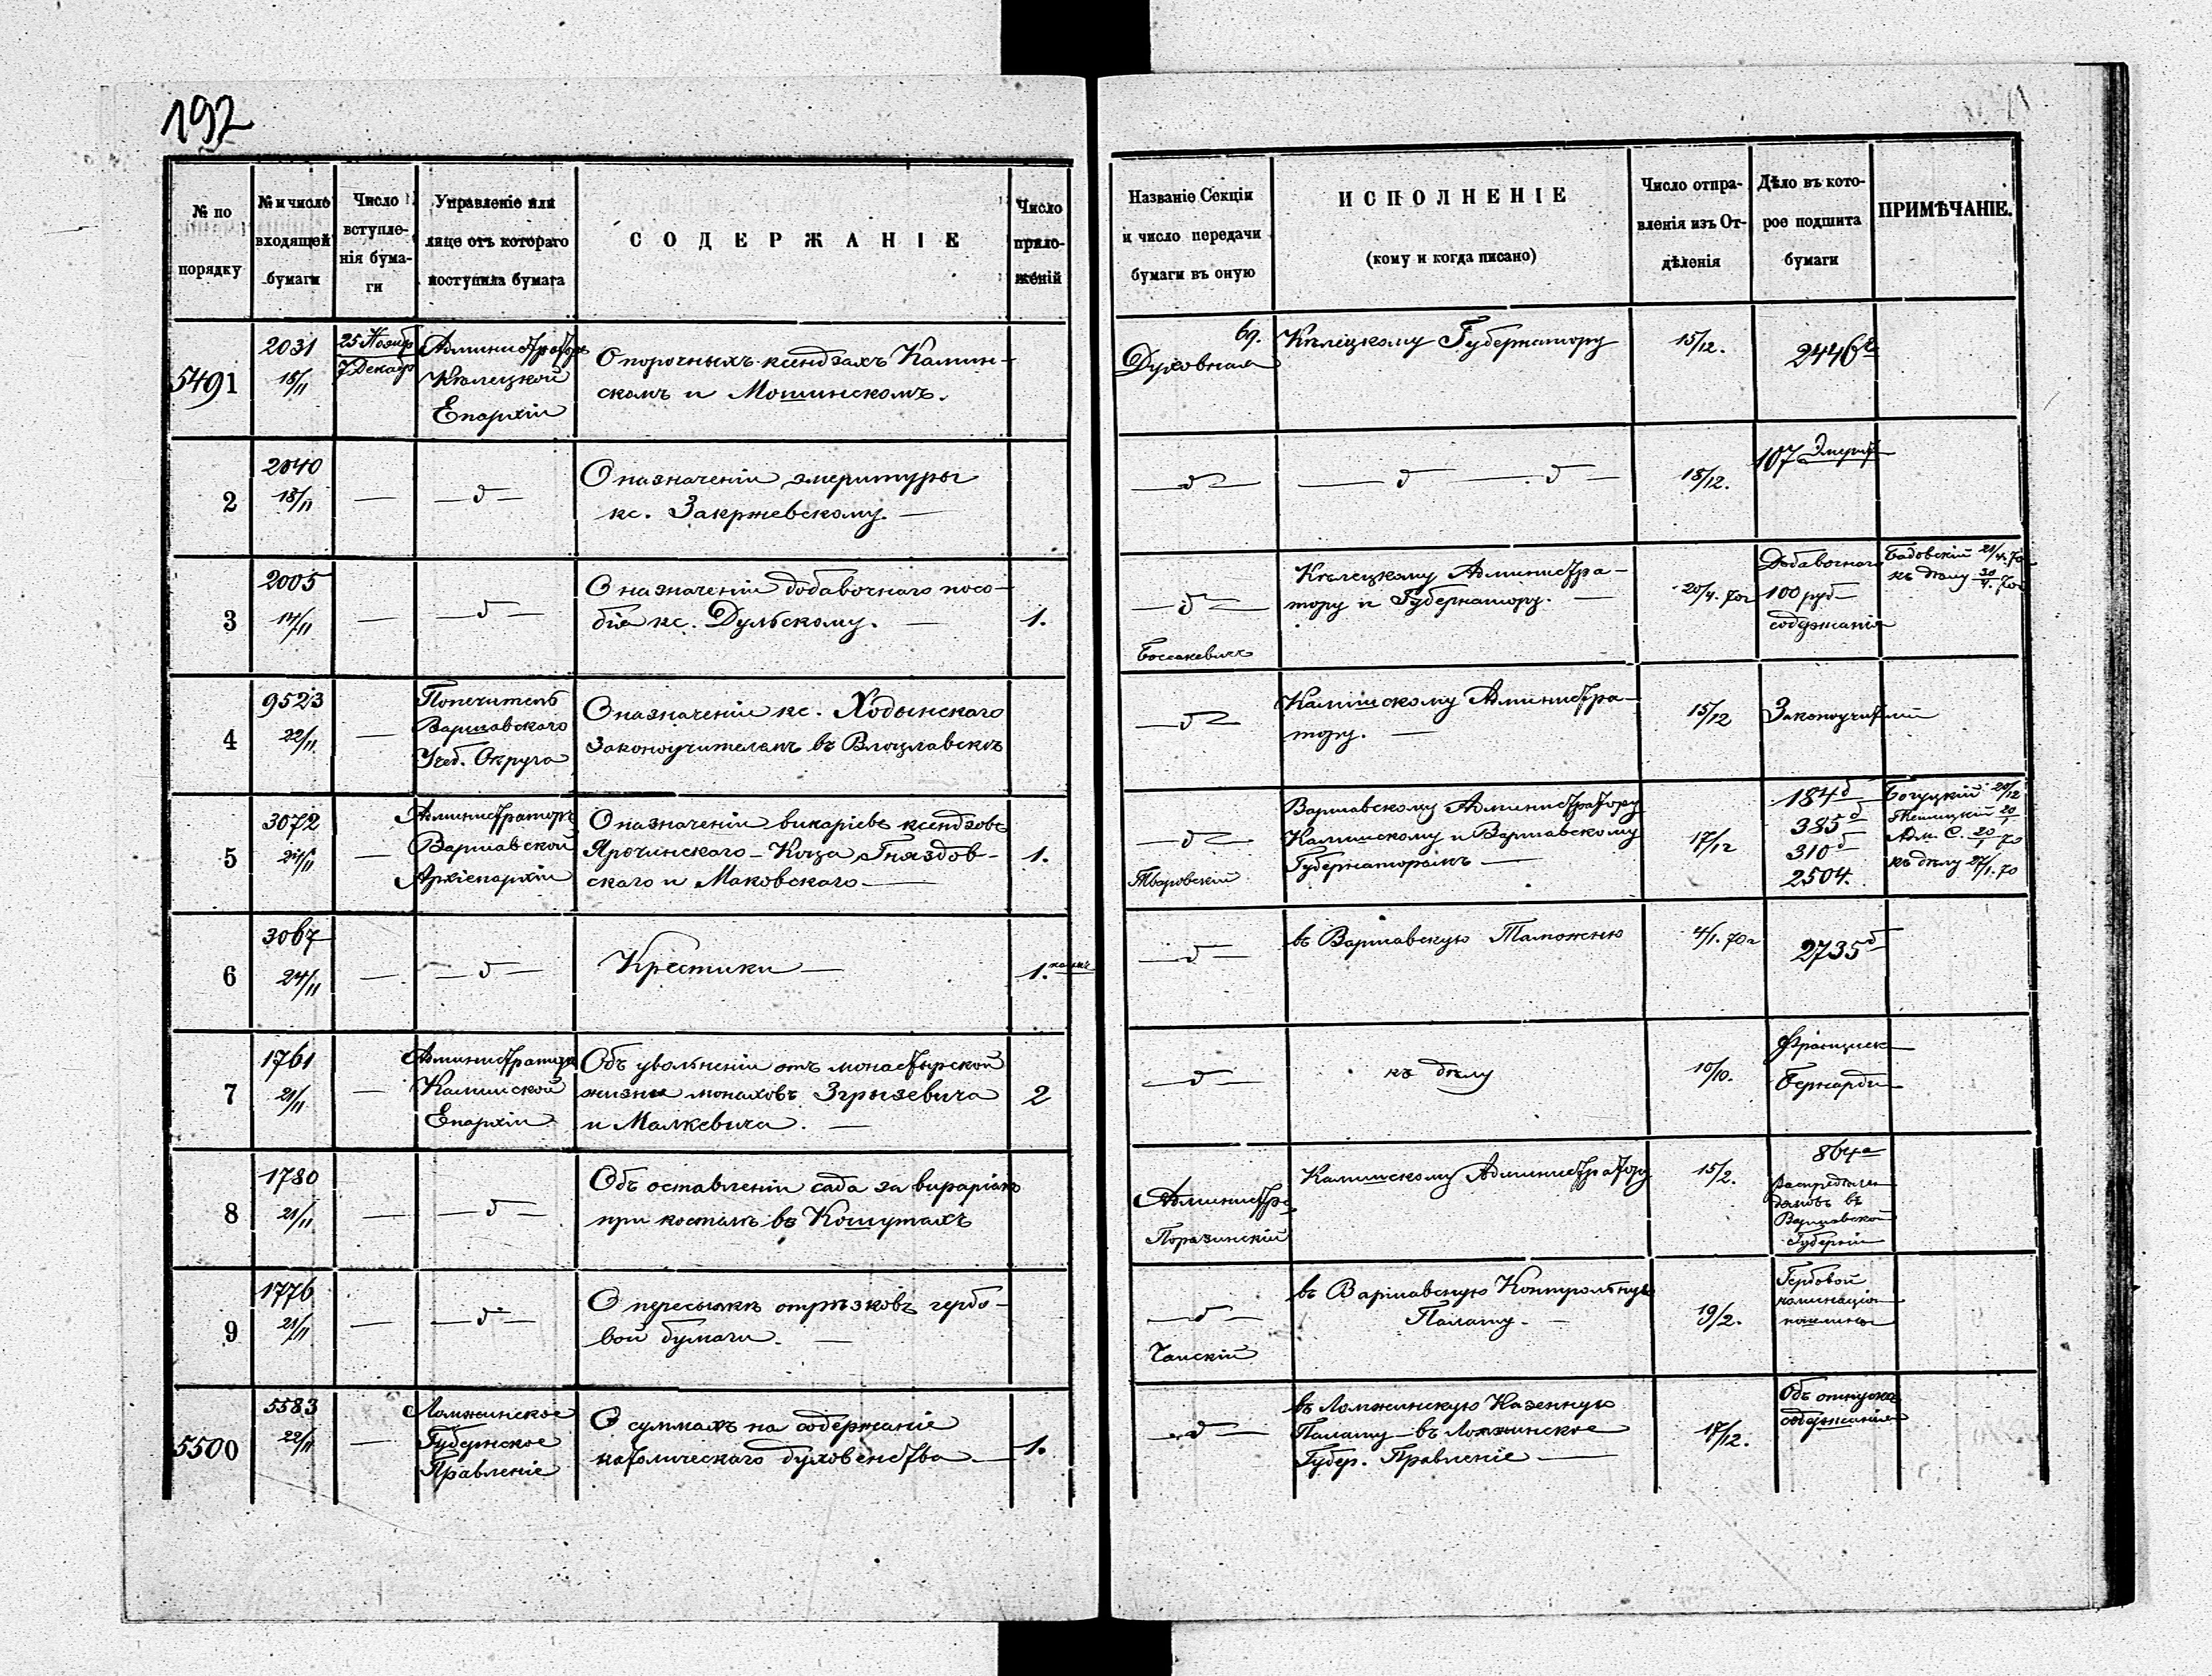 192
№ по порядку
№ и число входящей бумаги
Число вступленія бумаги
Управленіе или лице отъ котораго поступила бумага
СОДЕРЖАНІЕ
Число приложеній
Названіе Секціи и число передачи бумаги въ оную
ИСПОЛНЕНІЕ
(кому и когда писано)
Число отправленія изъ Отдѣленія
Дѣло въ которое подшита бумаги
ПРИМѢЧАНІЕ.
5491
2031
18/11
25 Нояб
7 Декаб
Администраторъ
Кѣлецкой
Епархіи
О порочныхъ ксендзахъ Камин-
скомъ и Мошинскомъ.
69.
Духовная
Кѣлецкому Губернатору
15/12.
2446
2
2040
18/11
— д —
О назначеніи эмеритуры
кс. Закржевскому. —
— д —
— д — — д —
18/12.
107 Эмерит
3
2005
14/11
— д —
О назначеніи добавочнаго посо-
бія кс. Дульскому. —
1.
— д —
Боссакевичъ
Кѣлецкому Администра-
тору и Губернатору. —
20/4. 70г
Добавочнаго
100 руб
содержанія
Бадовскій 21/4. 70
къ дѣлу 30/4. 70г
4
9523
22/11
Попечитель
Варшавскаго
Учеб. Округа
О назначеніи кс. Ходынскаго
Законоучителемъ въ Влоцлавскѣ
— д —
Калишскому Администра-
тору. —
15/12
Законоучителей
5
3072
24/11
Администраторъ
Варшавской
Архіепархіи
О назначеніи викаріевъ ксендзовъ
Ярочинскаго — Коца Гняздов-
скаго и Маковскаго —
1.
— д —
Тваровскій
Варшавскому Администратору
Калишскому и Варшавскому
Губернаторамъ —
17/12
184 д
385 д
310 д
2504.
Богуцкій 20/12
къ дѣлу 27/1. 70
6
3067
24/11
— д —
Крестики —
1.
— д —
въ Варшавскую Таможню
4/1. 70г
2735 д
7
1761
21/11
Администраторъ
Калишской
Епархіи
Объ увольненіи отъ монастырской
жизни монаховъ Згрызевича
и Малкевича. —
2
— д —
къ дѣлу
10/10.
Францишек
Бернарди
8
1780
21/11
— д —
Объ оставленіи сада за викаріемъ
при костелѣ въ Кошутахъ
Администра
Поразинскій
Калишскому Администратору
15/2.
864 а
Распредѣлен
домовъ въ
Варшавской
Губерніи
9
1776
21/11
— д —
О пересылкѣ отрѣзковъ гербо-
вой бумаги. —
— д —
Чамскій
въ Варшавскую Контрольную
Палату. —
19/2.
Гербовой
пошлины
5500
5583
22/11
Ломжинское
Губернское
Правленіе
О суммахъ на содержаніе
католическаго духовенства —
1.
— д —
въ Ломжинскую Казенную
Палату — въ Ломжинское
Губер. Правленіе —
17/12.
Объ отпускѣ
содержанія